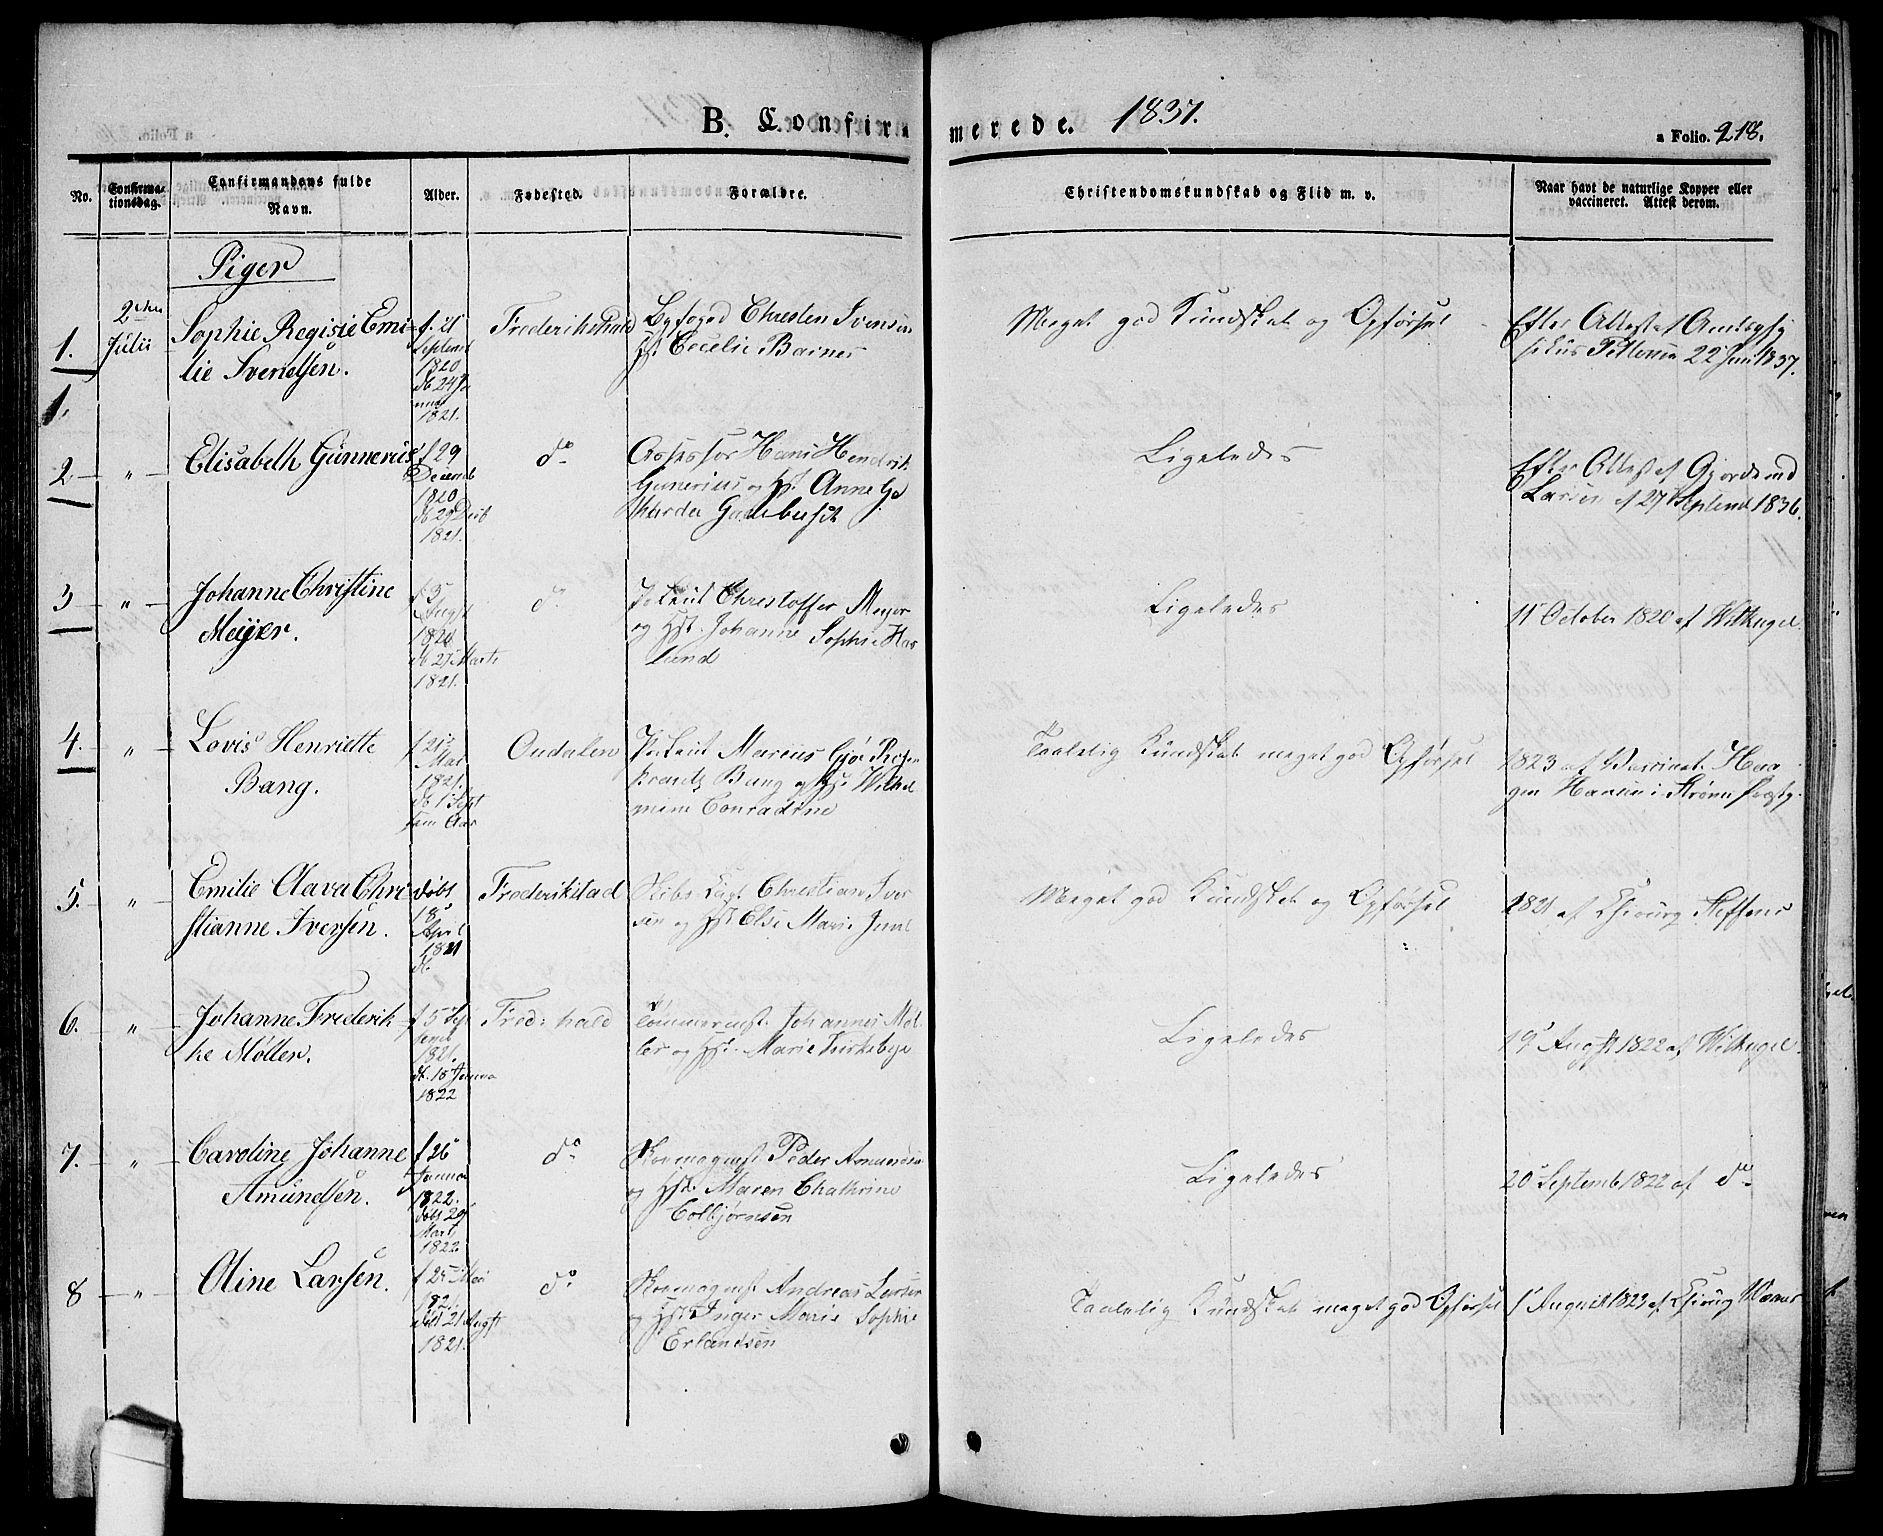 B. Confirmerede. 1837.
a Folio. 218.
No.
Confirmationsdag.
Confirmandens fulde Navn.
Alder.
Fødested.
Forældre.
Christendomskundskab og Flid m. v.
Naar havt de naturlige Kopper eller vaccineret. Attest derom.
Piger
1.
1.
2den Julii
Sophie Regisie Emi-
lie Svendsen.
f. 21
Septemb
1820
db 24 Ja
nuar
1821.
Frederikshald
Byfoged Chresten Svensen
Hst. Cecelie Barnes
Meget god Kundskab og Opførsel
Efter Attest af Amtsphy
sikus 22 Juni 1837.
2 " Elisabeth Gunnerus
f 29
Decemb
1820
db 29 Decb
1821.
do
Assessor Hans Hendrik
Gunerius og Hst. Anne Ca
tharda
Ligeledes
Efter Attest af Gjordemd
Larsen af 27 Septemb 1836.
3 " Johanne Christine
Meyer.
f 3
Augst
1820
db 27 Marts
1821.
do
Pr Leut Chrestoffer Meyer
og Hst. Johanne Sophie Has
lund
Ligeledes
11 October 1820 af Wilkugel.
4. " Lovis Henriette
Bang.
f 21
Mai
1821.
db 1 Sept
sam Aar
Oudalen
Pr Leut Marcus Gjøe Rosen
krantz Bang og Hst. Wilhel
mine Conradine
Taalelig Kundskab meget god Opførsel
1823 af Vaccinat. Haa
gen Hansen i Strøms Præstg.
5. " Emilie Clava Chri
stianne Iversen.
døbt
18
April
1821
Frederikstad
Skibs Capt. Chrestian Iver
sen og Hst Else Marie
Meget god Kundskab og Opførsel
1821 af Chirurg Steffens
6. " Johanne Frederik
ke Møller.
f 5 Sep
temb
1821.
db. 18 Janua
1822
Fred: hald
Tømmermst. Johannes Møl
ler og Hst. Marie Kirkebye
Ligeledes
19 Augst 1822 af Wilkugel.
7. " Caroline Johanne
Amundsen.
f 26
Janua
1822.
døbt 29
Mart
1822
do
Skomagmst. Peder Amundsen
og Hst. Maren Chathrine
Colbjørnsen
Ligeledes
20 Septemb 1822 af do
8 " Oline Larsen.
f 25 Mai
1821
døbt 21 Augst
1821.
do
Skomagmst Andreas Larsen
og Hst Inger Marie Sophie
Erlandsen
Taalelig Kundskab meget god Opførsel
1 August 1823 af Chirurg